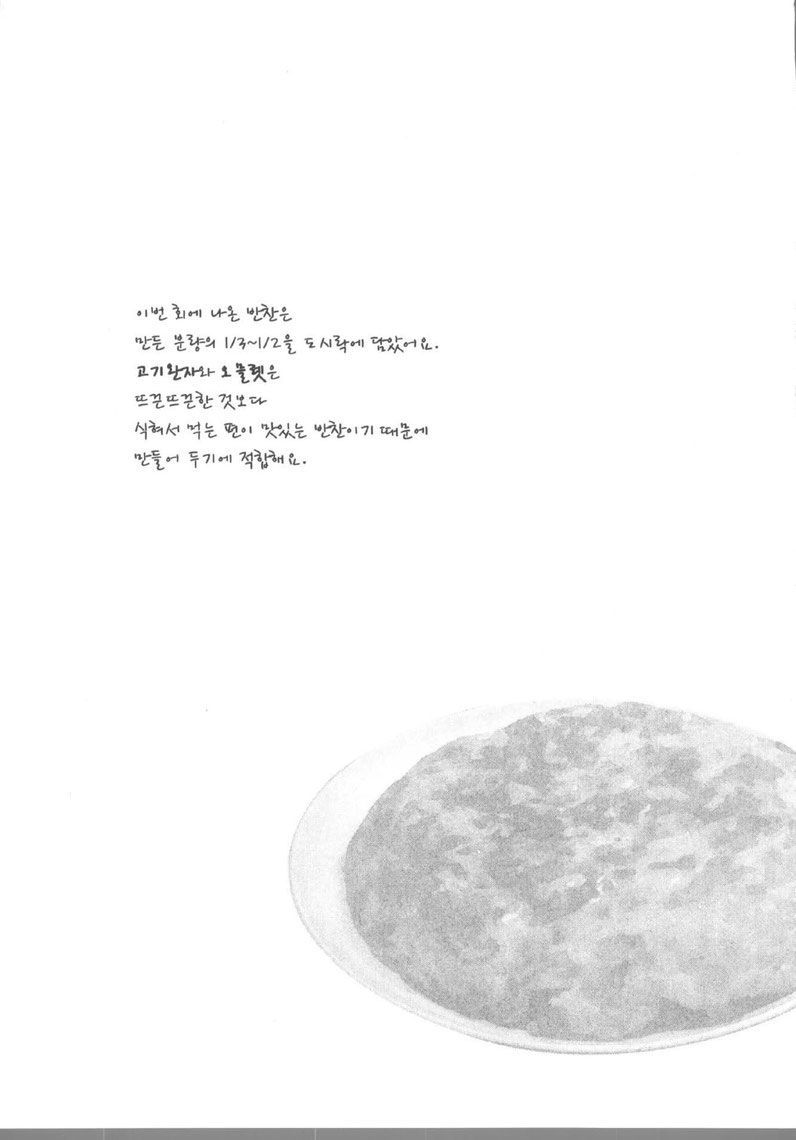 이번 회에 나온 반찬은
만든 분량의 1/3~1/2을 도시락에 담았어요.
고기완자와 오믈렛은
뜨끈뜨끈한 것보다
식혀서 먹는 편이 맛있는 반찬이기 때문에
만들어 두기에 적합해요.